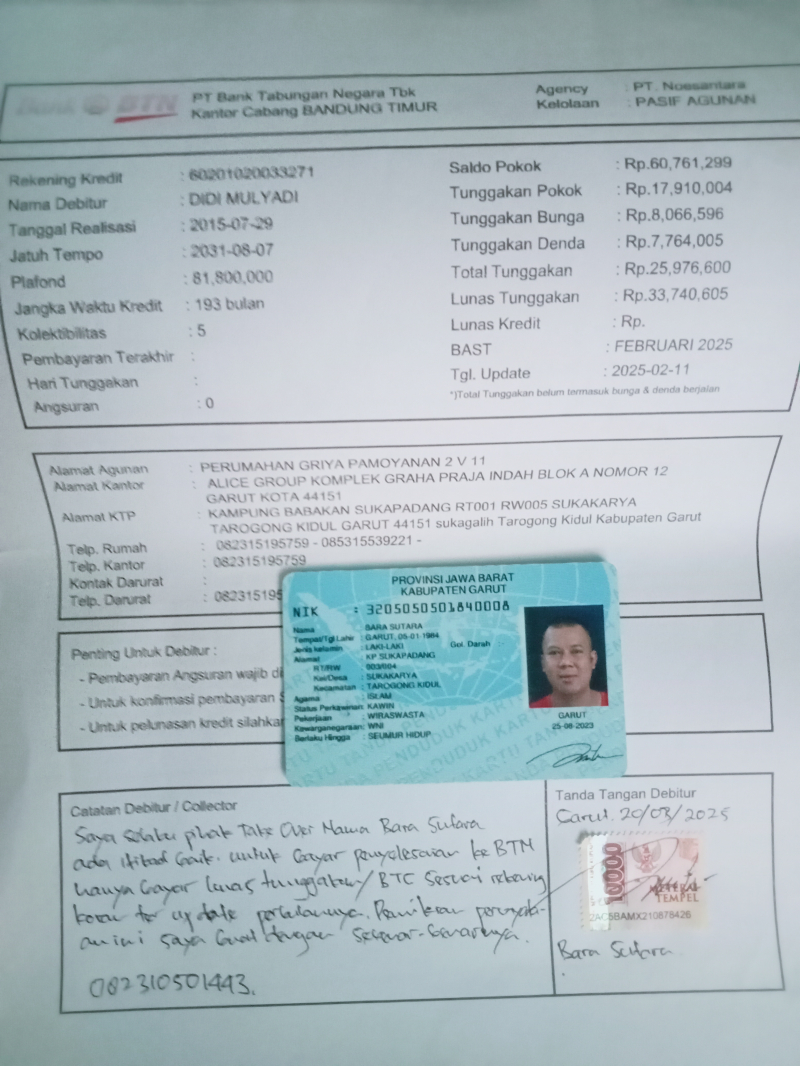 Bank BTN
PT Bank Tabungan Negara Tbk
Kantor Cabang BANDUNG TIMUR
Agency : PT. Noesantara
Kelolaan : PASIF AGUNAN
Rekening Kredit : 60201020033271
Nama Debitur : DIDI MULYADI
Tanggal Realisasi : 2015-07-29
Jatuh Tempo : 2031-08-07
Plafond : 81,800,000
Jangka Waktu Kredit : 193 bulan
Kolektibilitas : 5
Pembayaran Terakhir :
Hari Tunggakan :
Angsuran : 0
Saldo Pokok : Rp.60,761,299
Tunggakan Pokok : Rp.17,910,004
Tunggakan Bunga : Rp.8,066,596
Tunggakan Denda : Rp.7,764,005
Total Tunggakan : Rp.25,976,600
Lunas Tunggakan : Rp.33,740,605
Lunas Kredit : Rp.
BAST : FEBRUARI 2025
Tgl. Update : 2025-02-11
*)Total Tunggakan belum termasuk bunga & denda berjalan
Alamat Agunan : PERUMAHAN GRIYA PAMOYANAN 2 V 11
Alamat Kantor : ALICE GROUP KOMPLEK GRAHA PRAJA INDAH BLOK A NOMOR 12
GARUT KOTA 44151
Alamat KTP : KAMPUNG BABAKAN SUKAPADANG RT001 RW005 SUKAKARYA
TAROGONG KIDUL GARUT 44151 sukagalih Tarogong Kidul Kabupaten Garut
Telp. Rumah : 082315195759 - 085315539221 -
Telp. Kantor : 082315195759
Kontak Darurat :
Telp. Darurat : 082315195
Penting Untuk Debitur :
- Pembayaran Angsuran wajib di
- Untuk konfirmasi pembayaran
- Untuk pelunasan kredit silahkan
PROVINSI JAWA BARAT
KABUPATEN GARUT
NIK : 3205050501840008
Nama : BARA SUTARA
Tempat/Tgl Lahir : GARUT, 05-01-1984
Jenis kelamin : LAKI-LAKI Gol. Darah :-
Alamat : KP SUKAPADANG
RT/RW : 003/004
Kel/Desa : SUKAKARYA
Kecamatan : TAROGONG KIDUL
Agama : ISLAM
Status Perkawinan: KAWIN
Pekerjaan : WIRASWASTA
Kewarganegaraan: WNI
Berlaku Hingga : SEUMUR HIDUP
GARUT
25-08-2023
Catatan Debitur / Collector
Saya selaku pihak Take Over Nama Bara Sutara
ada itikad baik untuk bayar penyelesaian ke BTN
hanya bayar lunas tunggakan / BTC sesuai rekening
koran ter update perbulannya. Demikian pernyata-
an ini saya buat dengan sebenar-benarnya.
082310501443.
Tanda Tangan Debitur
Garut. 20/03/2025
10000
METERAI
TEMPEL
2AC5BAMX210878426
Bara Sutara